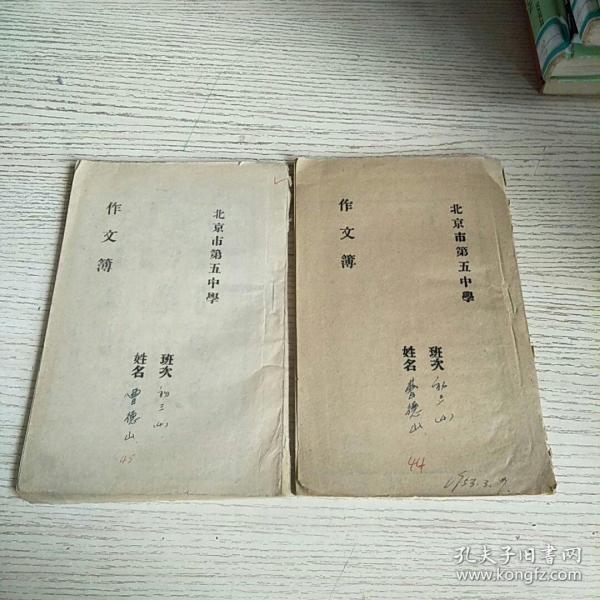 北京市第五中學
作文簿
班次 初三
姓名 曹德山
45
北京市第五中學
作文簿
班次
姓名 曹德山
44
1953.3.
孔夫子旧书网
www.kongfz.com